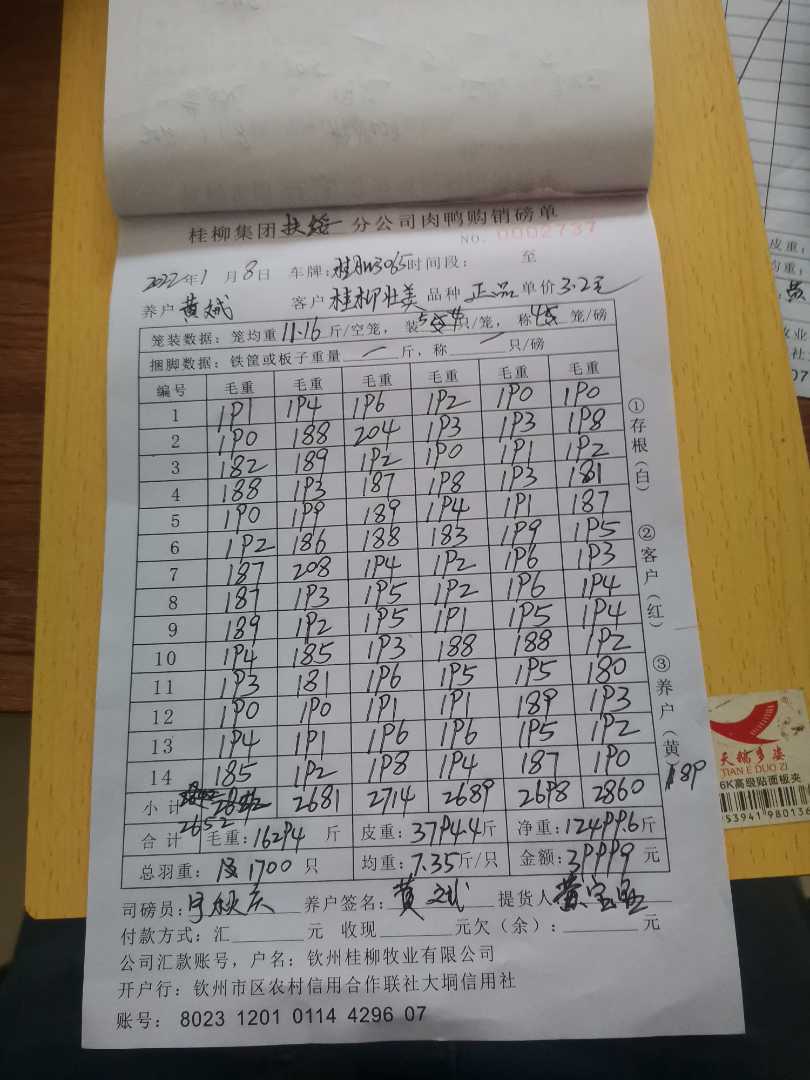 桂柳集团扶绥分公司肉鸭购销磅单
NO. 0002737
2022年1月8日 车牌: 时间段: 至
养户 黄斌 客户 桂柳壮美 品种 正品 单价 3.2元
笼装数据: 笼均重 11.16 斤/空笼, 装 只/笼, 称 笼/磅
捆脚数据: 铁筐或板子重量 — 斤, 称 — 只/磅
编号 毛重 毛重 毛重 毛重 毛重 毛重
1 191 194 196 192 190 190
2 190 188 204 193 193 198
3 182 189 192 190 191 192
4 188 193 187 198 193 181
5 190 199 189 194 191 187
6 192 186 188 183 199 195
7 187 208 194 192 196 193
8 187 193 195 192 196 194
9 189 192 195 191 195 194
10 194 185 193 188 188 192
11 193 181 196 195 195 180
12 190 190 191 191 189 193
13 194 191 196 196 195 192
14 185 192 198 194 187 190
189
小计 2652 2681 2714 2689 2698 2860
合计 毛重: 16294 斤 皮重: 3794.4 斤 净重: 12499.6 斤
总羽重: 1700 只 均重: 7.35 斤/只 金额: 39999 元
司磅员: 养户签名: 黄斌 提货人
付款方式: 汇 元 收现 元欠(余): 元
公司汇款账号, 户名: 钦州桂柳牧业有限公司
开户行: 钦州市区农村信用合作联社大垌信用社
账号: 8023 1201 0114 4296 07
①存根(白)
②客户(红)
③养户(黄)
天稿多姿
TIAN E DUO ZI
6K高级贴面板夹
953941 980136